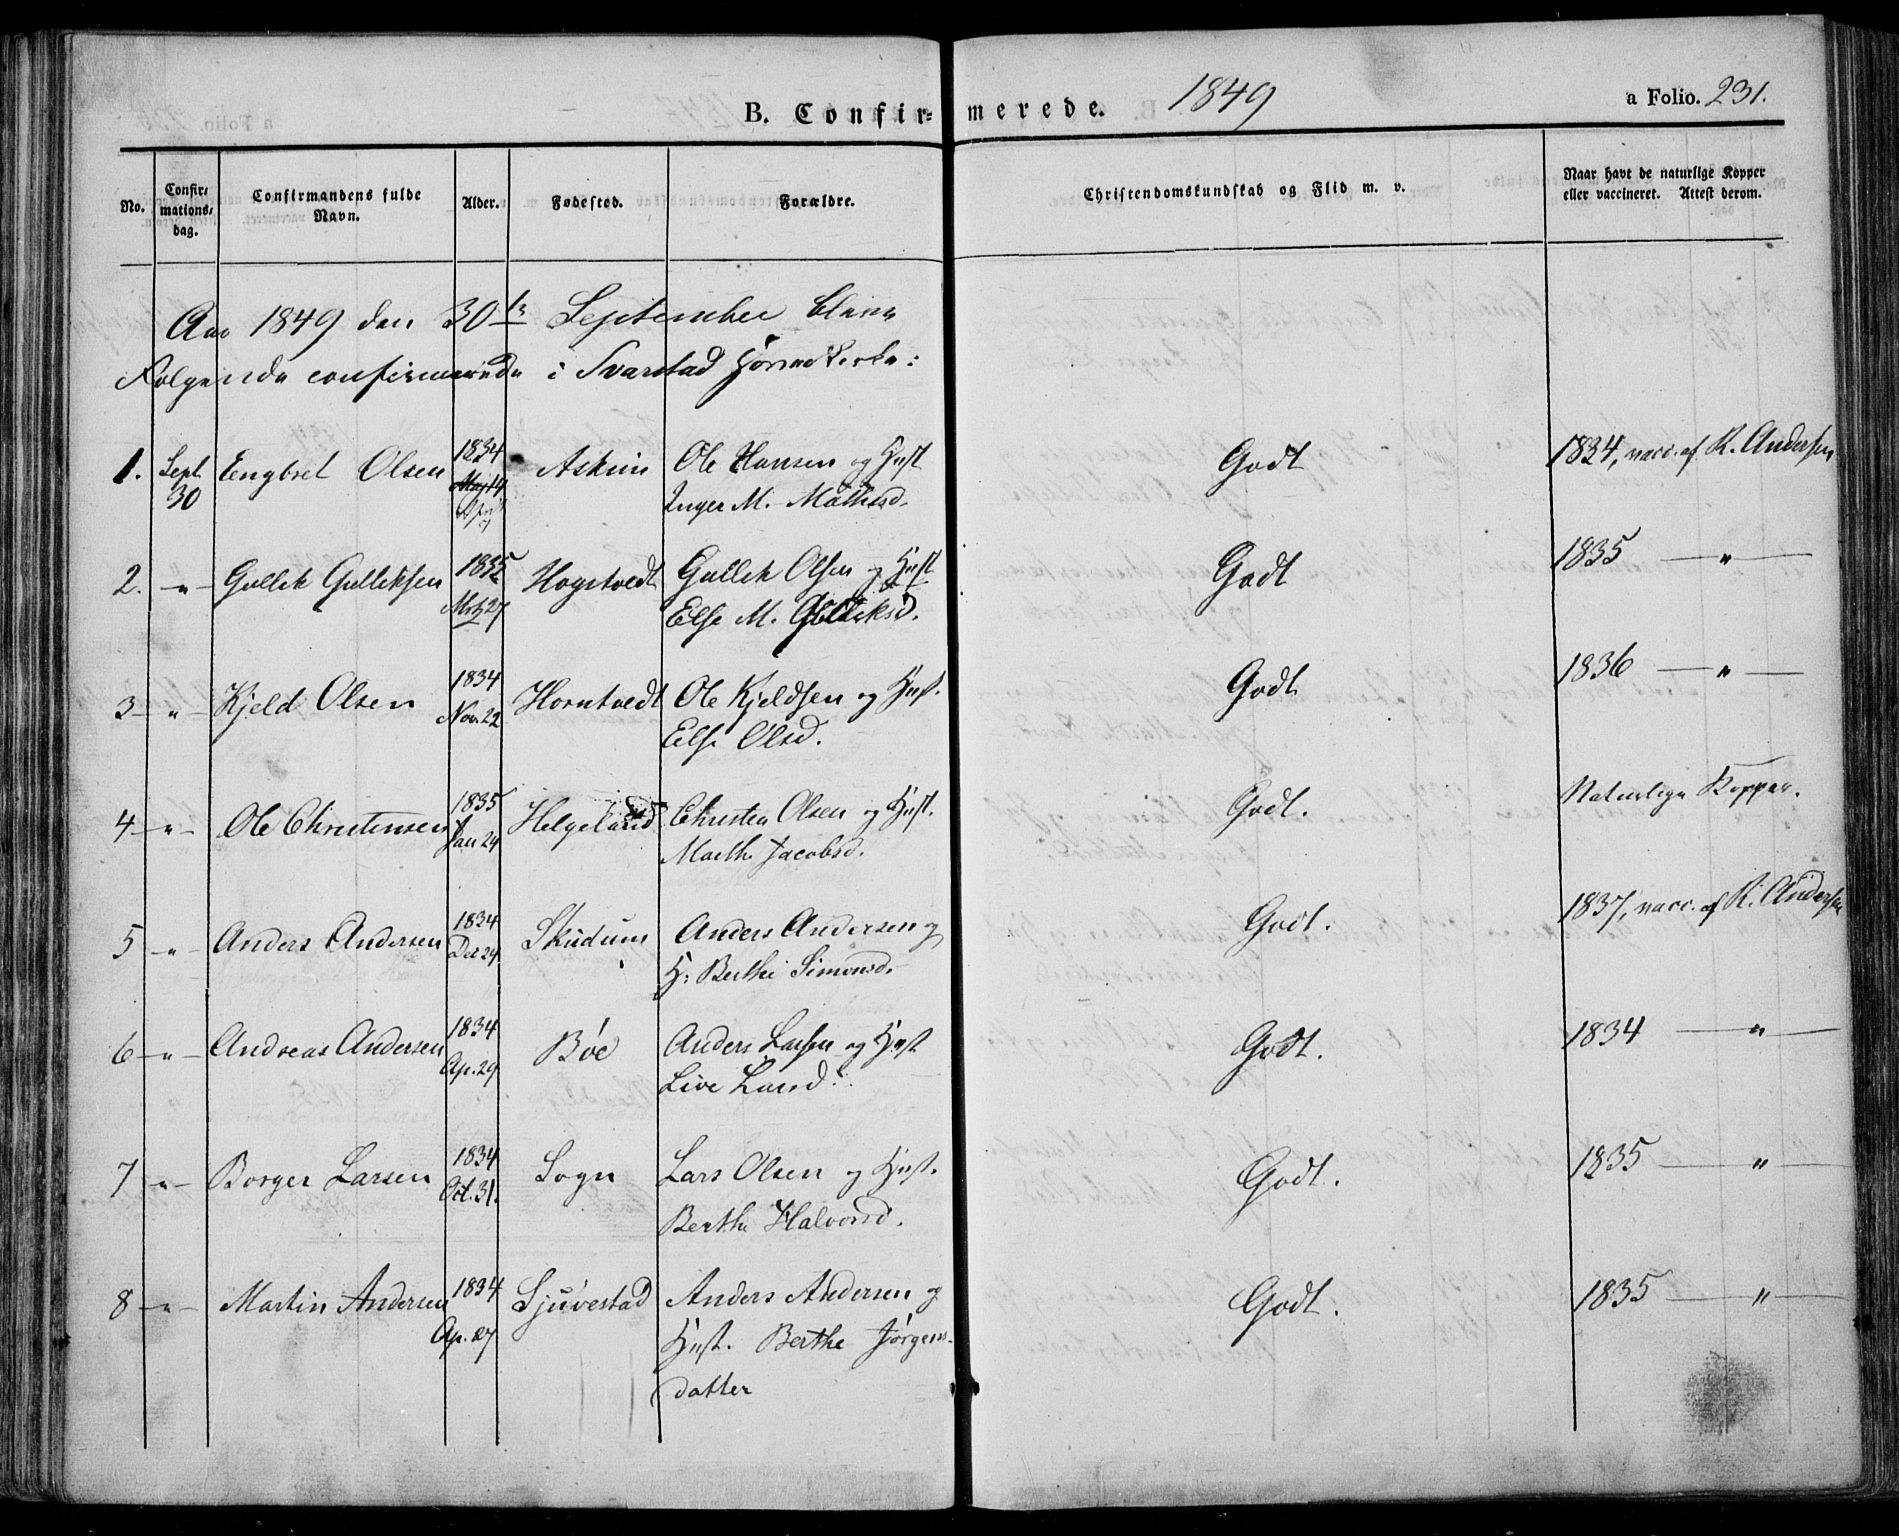 B. Confir=merede. 1849 a Folio. 231.
No. Confir= mations= dag. Confirmandens fulde Navn. Alder. Fødested. Forældre. Christendomskundskab og Flid m. v. Naar havt de naturlige Kopper eller vaccineret. Attest derom.
Aar 1849 den 30te September bleve
Følgende confirmerede i Svarstad Hovedkirke:
1. Sept 30 Engbret Olsen 1834 Askim Ole Hansen og Hust Inger M. Mathisd. Godt 1834, vacc. af R. Andersen
2. -"- Gullik Gulliksen 1835 Mrtz 27 Hogstvedt Gullik Olsen og Hust Else M. Gulliksd. Godt 1835 — " —
3 -"- Kjeld Olsen 1834 Nov. 22 Horntvedt Ole Kjeldsen og Hust. Else Olsd. Godt 1836 — " —
4 -"- Ole Christensen 1835 Jan 24 Helgeland Christen Olsen og Hust. Marthe Jacobsd. Godt. Naturlige Kopper.
5 -"- Anders Andersen 1834 Dec 24 Skudum Anders Andersen og H. Berthe Simonsd. Godt. 1837, vacc. af R. Andersen
6 -"- Andreas Andersen 1834 Ap. 29 Bøe Anders Larsen og Hust Live Larsd. Godt. 1834 — " —
7 -"- Borger Larsen 1834 Oct. 31. Sogn Lars Olsen og Hust. Berthe Halvorsd. Godt. 1835 — " —
8 -"- Martin Andersen 1834 Ap. 27 Sjuvestad Anders Andersen og Hust. Berthe Jørgens- datter Godt. 1835 — " —